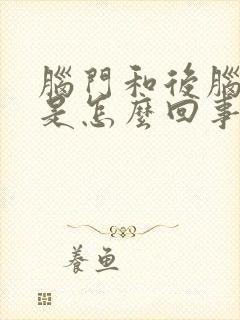 腦門和後腦
是怎麼回事
養魚